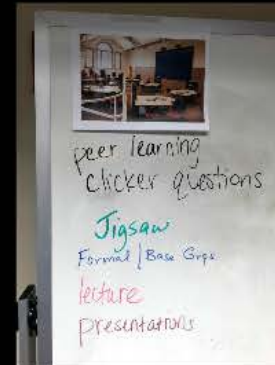 peer learning
clicker questions
Jigsaw
Formal / Base Grps
lecture
presentations